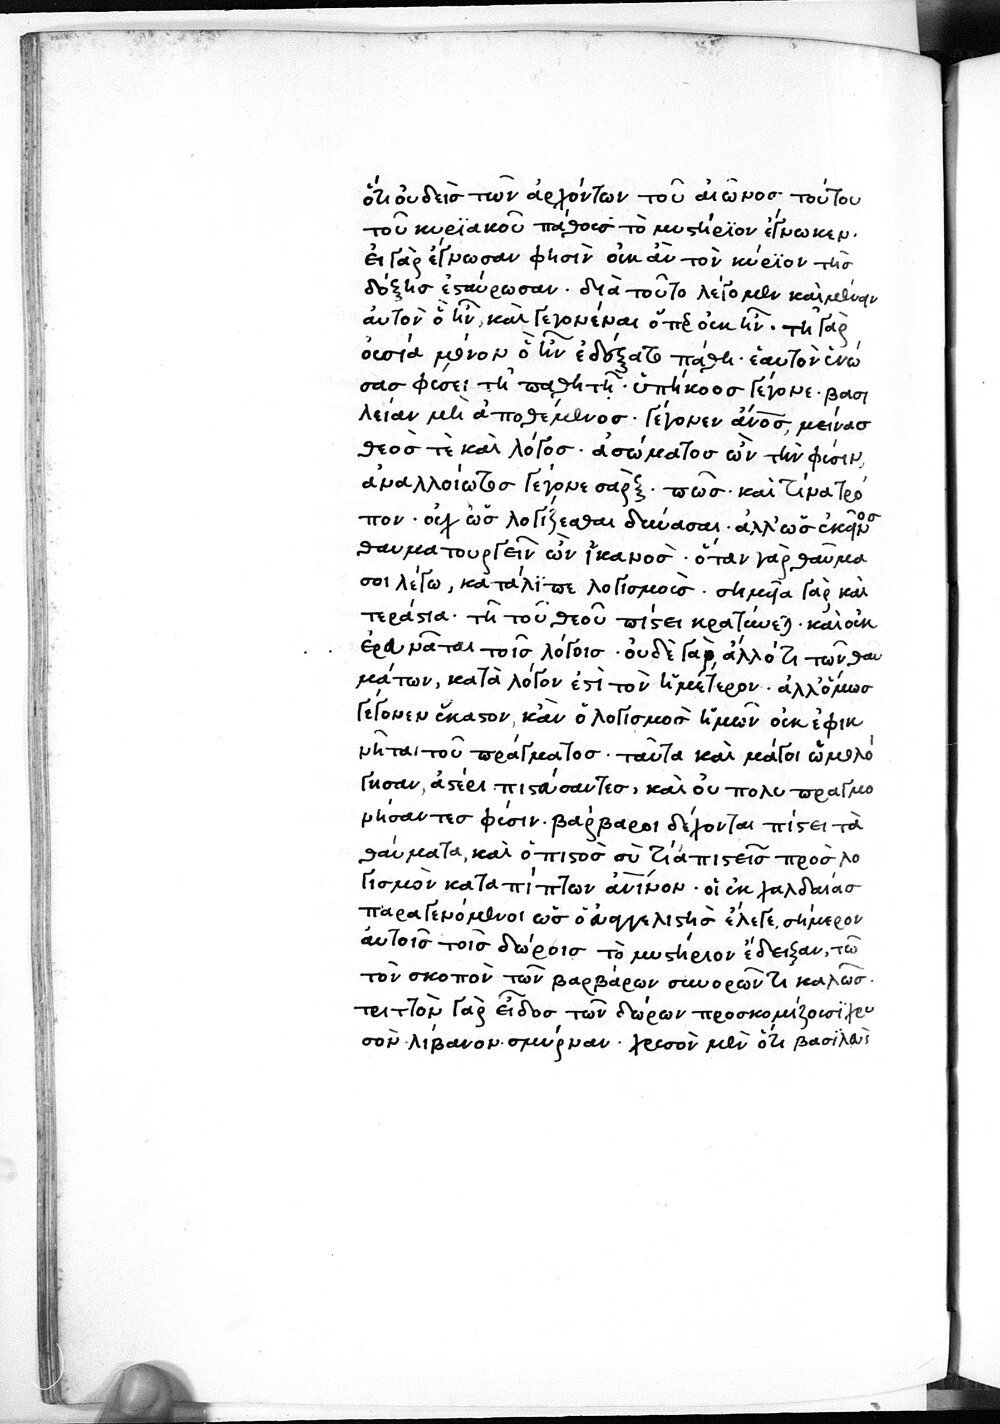 ὅτι οὐδεὶς τῶν ἀρχόντων τοῦ αἰῶνος τούτου
τοῦ κυρϊακοῦ πάθους τὸ μυστήρϊον ἔγνωκεν·
εἰ γὰρ ἔγνωσαν φησὶν οὐκ ἂν τὸν κύρϊον τῆς
δόξης ἐσταύρωσαν· διὰ τοῦτο λέγομεν καὶ μεῖναι
αὐτὸν ὃ ἦν, καὶ γεγονέναι ὅπερ οὐκ ἦν· τῇ γὰρ
οὐσίᾳ μένον ὃ ἦν ἐδέξατο πάθη· ἑαυτὸν ἑνώ
σας φύσει τῇ παθητῇ· ὑπήκοος γέγονε· βασι
λείαν μὴ ἀποθέμενος· γέγονεν ἄνος, μείνας
θεὸς τὲ καὶ λόγος· ἀσώματος ὢν τὴν φύσιν,
ἀναλλοίωτος γέγονε σάρξ· πῶς· καὶ τίνα τρό
πον· οὐχ ὡς λογίζεσθαι δύνασαι· ἀλλ' ὡς ἐκεῖνος
θαυματουργεῖν ὢν ἵκανος· ὅταν γὰρ θαῦμα
σοι λέγω, κατάλϊπε λογισμούς· σημεῖα γὰρ καὶ
τεράστια· τῇ τοῦ θεοῦ πίστει κρατύνεται· καὶ οὐκ
ἐρευνᾶται τοῖς λόγοις· οὐδὲ γὰρ ἄλλό τι τῶν θαυ
μάτων, κατὰ λόγον ἐστὶ τὸν ἡμέτερον· ἀλλ' ὅμως
γέγονεν ἕκαστον, κἂν ὁ λογισμὸς ἡμῶν οὐκ ἐφικ
νῆται τοῦ πράγματος· ταῦτα καὶ μάγοι ὡμολό
γησαν, ἀστέρι πιστεύσαντες, καὶ οὐ πολυπραγμο
νήσαντες φύσιν· βάρβαροι δέχονται πίστει τὰ
θαύματα, καὶ ὁ πιστὸς σὺ τί ἀπιστεῖς πρὸς λο
γισμὸν καταπίπτων ἀνίνον· οἱ ἐκ χαλδαίας
παραγενόμενοι ὡς ὁ ἐυαγγελιστὴς ἔλεγε, σήμερον
αὐτοῖς τοῖς δώροις τὸ μυστήριον ἔδειξαν, τῷ
τὸν σκοπὸν τῶν βαρβάρων συνορῶντι καλῶς·
τριττὸν γὰρ εἶδος τῶν δώρων προσκομίζουσϊ χρυ
σὸν· λίβανον· σμύρναν· χρυσὸν μὲν ὅτι βασϊλεὺς